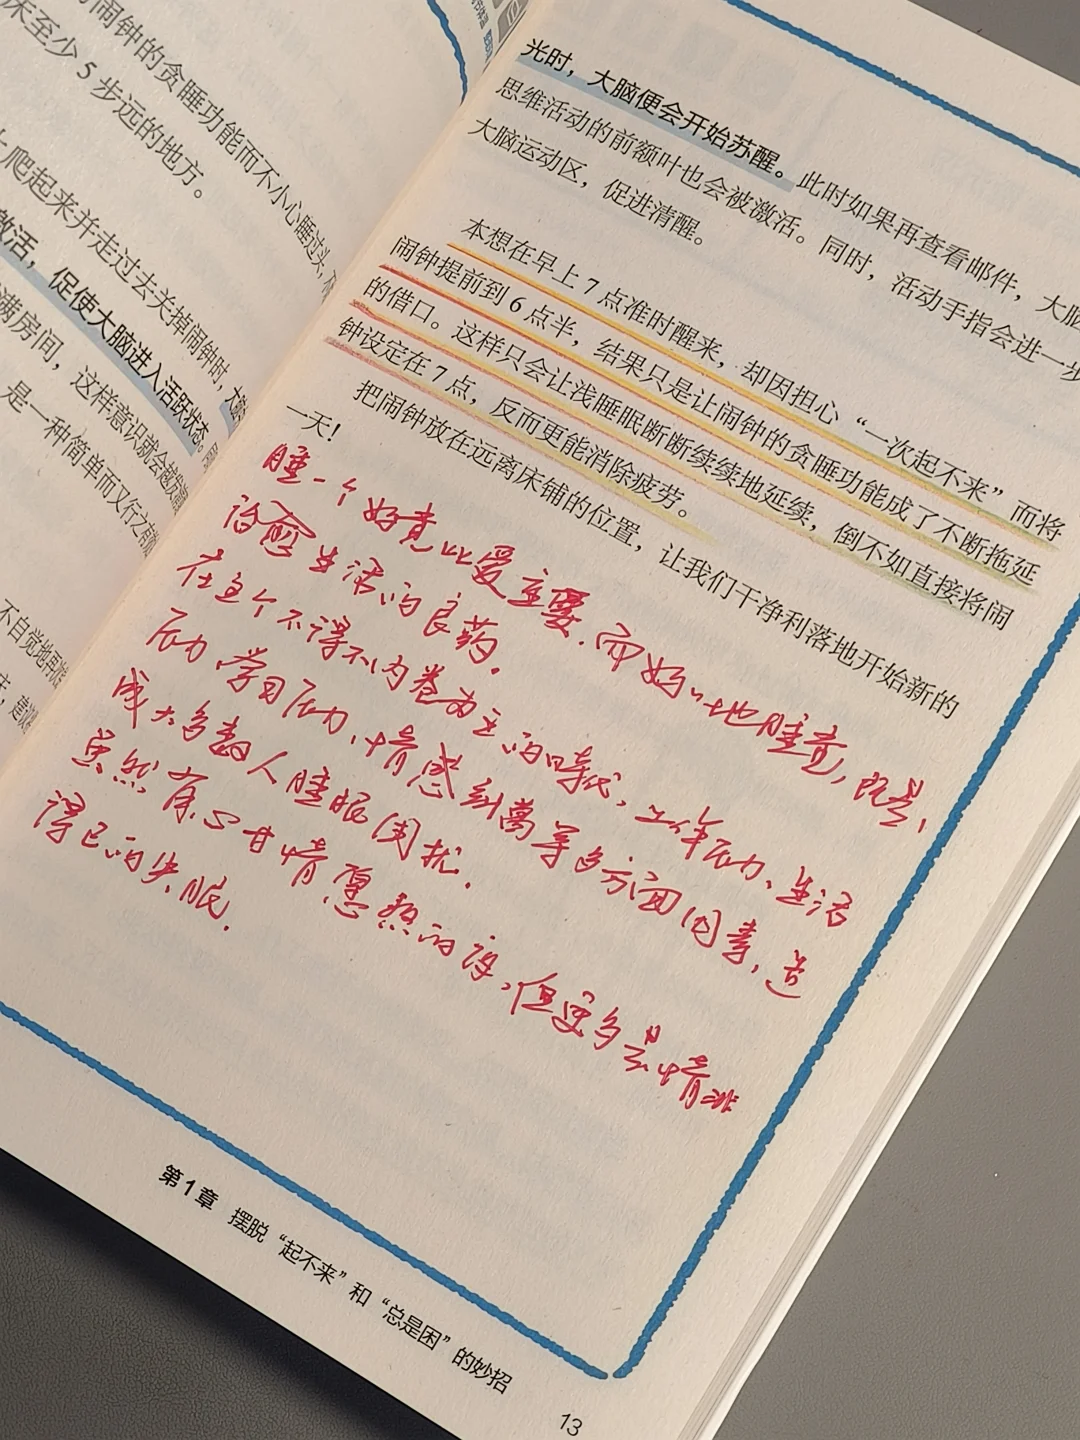 闹钟的贪睡功能而不小心睡过头,
床至少 5 步远的地方。
爬起来并走过去关掉闹钟时,
激活,促使大脑进入活跃状态。
满房间,这样意识就会越发清
是一种简单而又行之有效
不自觉地再次
光时,大脑便会开始苏醒。此时如果再查看邮件,大脑
思维活动的前额叶也会被激活。同时,活动手指会进一步
大脑运动区,促进清醒。
本想在早上 7 点准时醒来,却因担心“一次起不来”而将
闹钟提前到 6 点半,结果只是让闹钟的贪睡功能成了不断拖延
的借口。这样只会让浅睡眠断断续续地延续,倒不如直接将闹
钟设定在 7 点,反而更能消除疲劳。
把闹钟放在远离床铺的位置,让我们干净利落地开始新的
一天!
睡一个好觉比爱重要.而好好地睡觉,既是,
治愈生活的良药。
在这个不得不内卷为主的时代,工作压力、生活
压力、学习压力、情感纠葛等多方面因素,造
成大多数人睡眠困扰.
虽然有心甘情愿熬的夜,但更多是情非
得已的失眠.
第 1 章 摆脱“起不来”和“总是困”的妙招
13